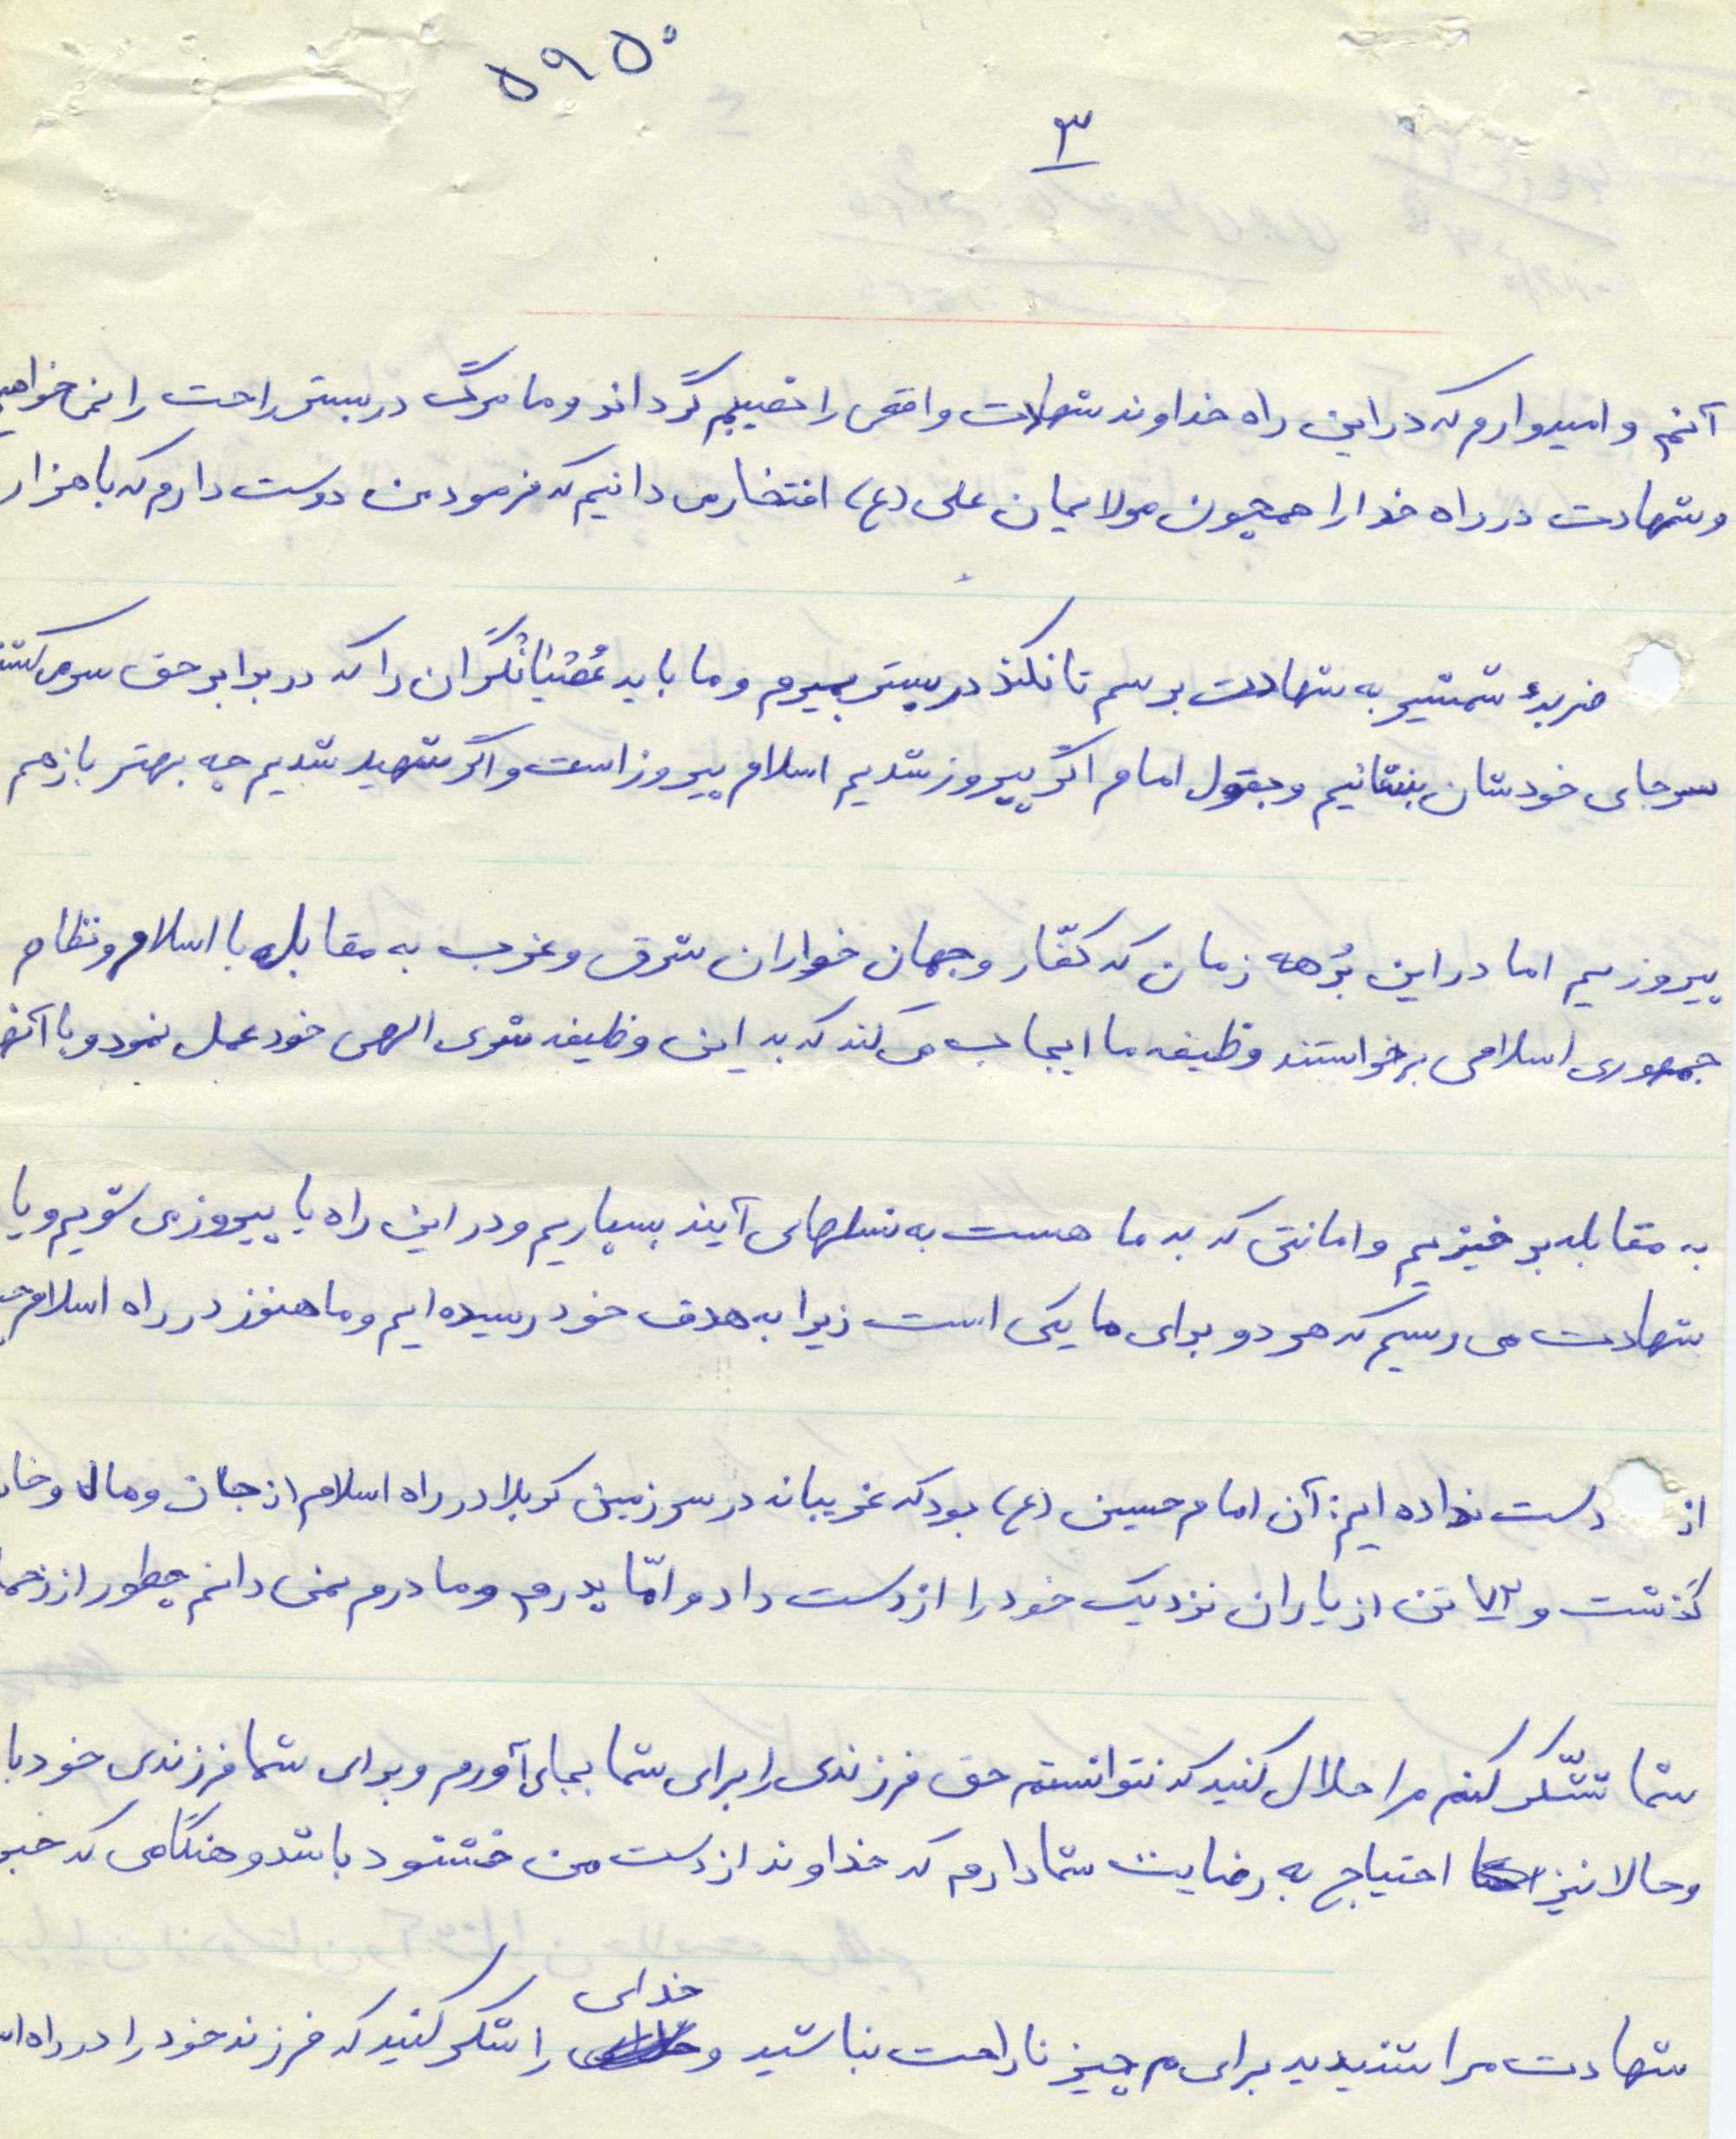 ۵۹۵۰
۳
آنم و امیدوارم که در این راه خداوند شهادت واقعی را نصیبم گرداند و ما مرگ در بستر راحت را نمی خواهیم
و شهادت در راه خدا را همچون مولایمان علی (ع) افتخار می دانیم که فرمودن دوست دارم که با هزار
ضربهٔ شمشیر به شهادت برسم تا نکند در بستر بمیرم و ما باید عُصْیٰانْگران را که در برابر حق سرمی کشند
سرجای خودشان بنشانیم و بقول امام اگر پیروز شدیم اسلام پیروز است و اگر شهید شدیم چه بهتر باز هم
پیروزیم اما در این بُرهه زمان که کفّار و جهان خواران شرق و غرب به مقابله با اسلام و نظام
جمهوری اسلامی برخواستند وظیفه ما ایجاب می کند که به این وظیفه شرعی الهی خود عمل نمود و با آنها
به مقابله برخیزیم و امانتی که به ما هست به نسلهای آیند بسپاریم و در این راه یا پیروز می شویم و یا
شهادت می رسیم که هر دو برای ما یکی است زیرا به هدف خود رسیده ایم و ما هنوز در راه اسلام
از دست نداده ایم: آن امام حسین (ع) بود که غریبانه در سرزمین کربلا در راه اسلام از جان و مال و
گذشت و ۷۲ تن از یاران نزدیک خود را از دست داد و امّا پدرم و مادرم نمی دانم چطور از
شما تشّکر کنم مرا حلال کنید که نتوانستم حق فرزندی را برای شما بجای آورم و برای شما فرزندی خود با
و حالا نیز احتیاج به رضایت شما دارم که خداوند از دست من خشنود باشد و هنگامی که خبر
خدای
شهادت مرا شنیدید برای م چیز ناراحت نباشید و را شکر کنید که فرزند خود را در راه